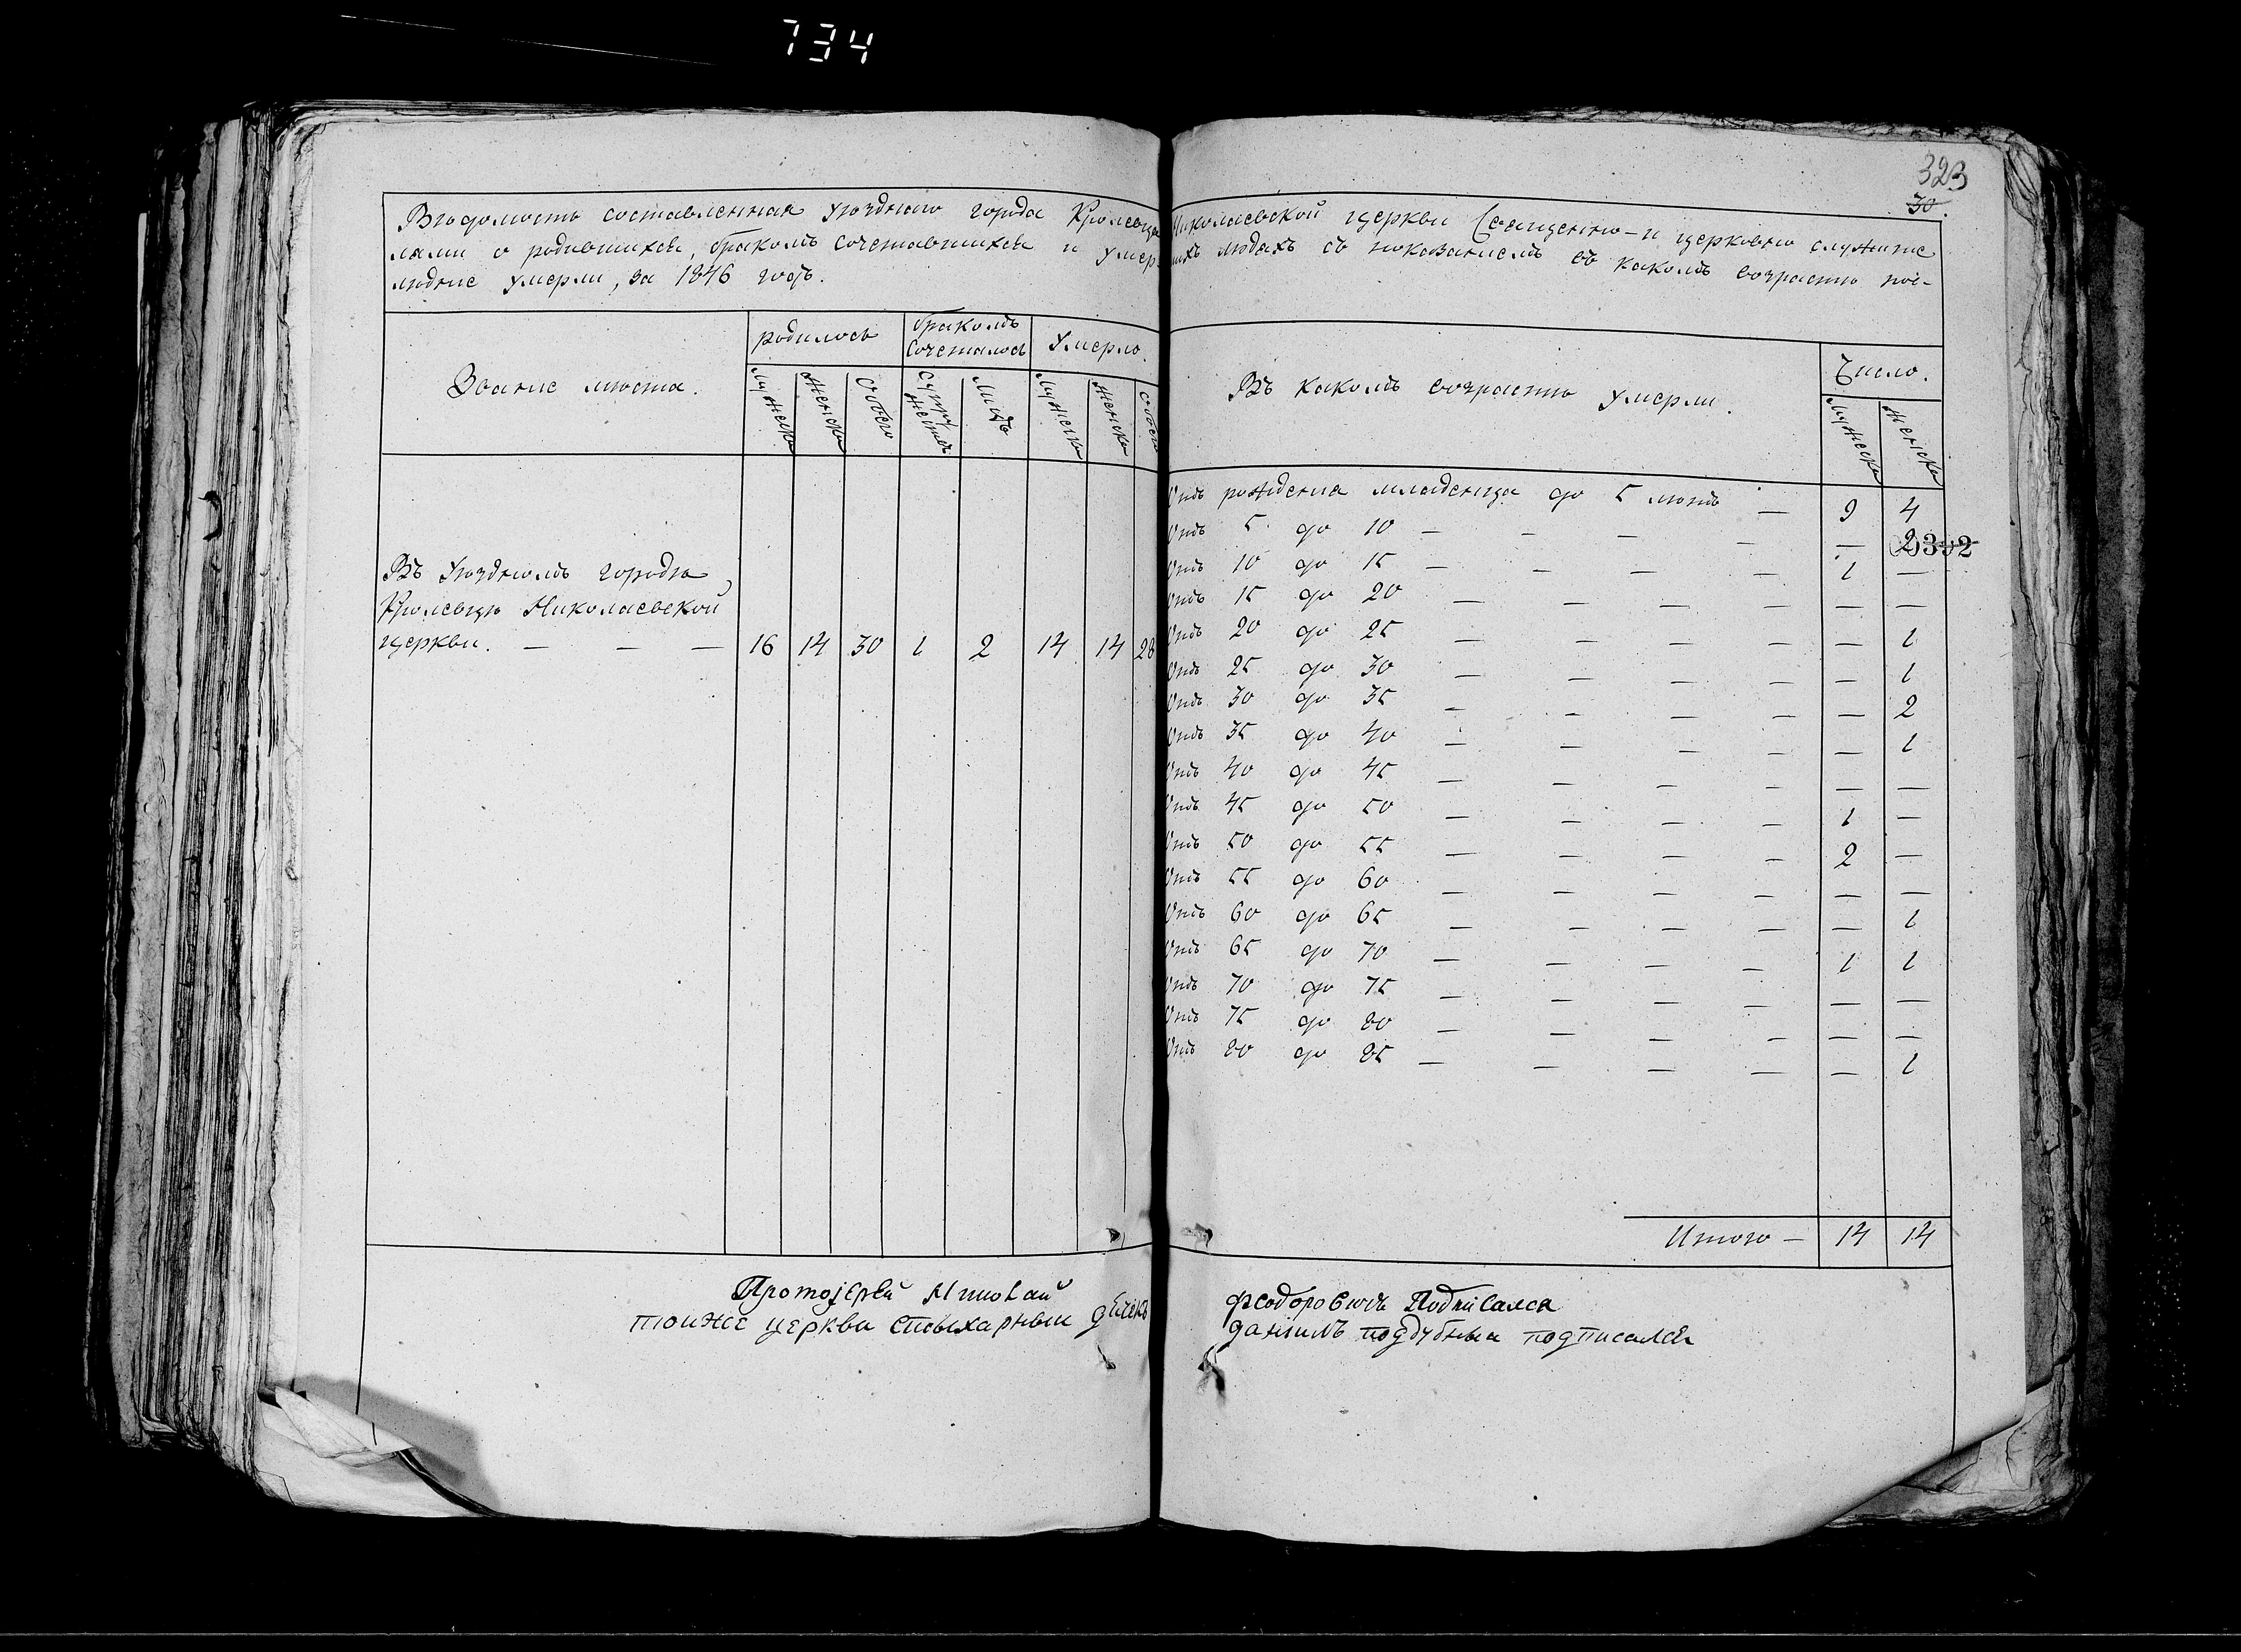 734
323
30
Вѣдомость составленная уѣзднаго города Кролевца Николаевской церкви Священно-и церковно служите
лями о родившихся, бракомъ сочетавшихся и умершихъ людяхъ съ показаніемъ въ какомъ возрастѣ пос-
лѣдніе умерли, за 1846 годъ.
Званіе мѣста.
родилось
бракомъ сочеталось
Умерло.
Мужеска
Женска
Обоего
Супружествъ
Лицъ
Мужеска
Женска
Обоего
Въ какомъ возрастѣ умерли.
Число.
Мужеска
Женска
Въ уѣздномъ городѣ
Кролевцѣ Николаевской
церкви. — — — 16 14 30 1 2 14 14 28
Отъ рожденія младенца до 5 лѣтъ — 9 4
Отъ 5 до 10 — — — — — 2
Отъ 10 до 15 — — — — 1 —
Отъ 15 до 20 — — — — — —
Отъ 20 до 25 — — — — — 1
Отъ 25 до 30 — — — — — 1
Отъ 30 до 35 — — — — — 2
Отъ 35 до 40 — — — — — 1
Отъ 40 до 45 — — — — — —
Отъ 45 до 50 — — — — 1 —
Отъ 50 до 55 — — — — 2 —
Отъ 55 до 60 — — — — — —
Отъ 60 до 65 — — — — — 1
Отъ 65 до 70 — — — — 1 1
Отъ 70 до 75 — — — — — —
Отъ 75 до 80 — — — — — —
Отъ 80 до 85 — — — — — 1
Итого — 14 14
Протоіерей Николай Феодоровичъ Подписался
тоиже церкви стихарныи дьячекъ даніилъ поддубныи подписался